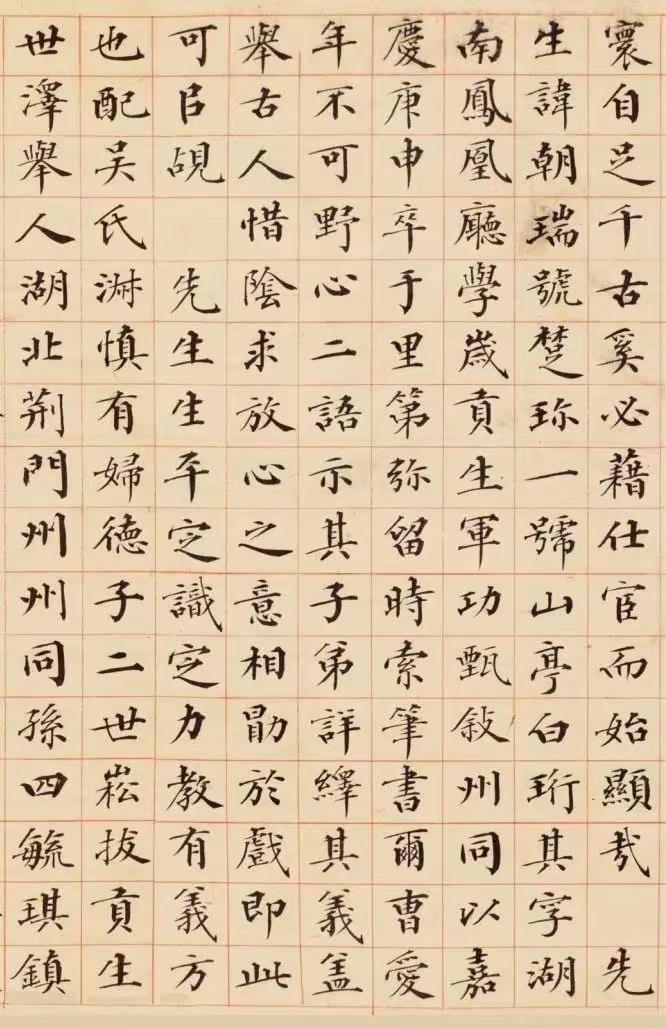 寰自足千古奚必藉仕宦而始顯哉　先
生諱朝瑞號楚珎一號山亭白珩其字湖
南鳳凰廳學歲貢生軍功甄敍州同以嘉
慶庚申卒于里第弥留時索筆書爾曹愛
年不可野心二語示其子弟詳繹其義盖
舉古人惜陰求放心之意相勖於戲即此
可㠯覘　先生生平定識定力教有義方
也配吳氏淑慎有婦德子二世崧拔貢生
世澤舉人湖北荊門州州同孫四毓琪鎮